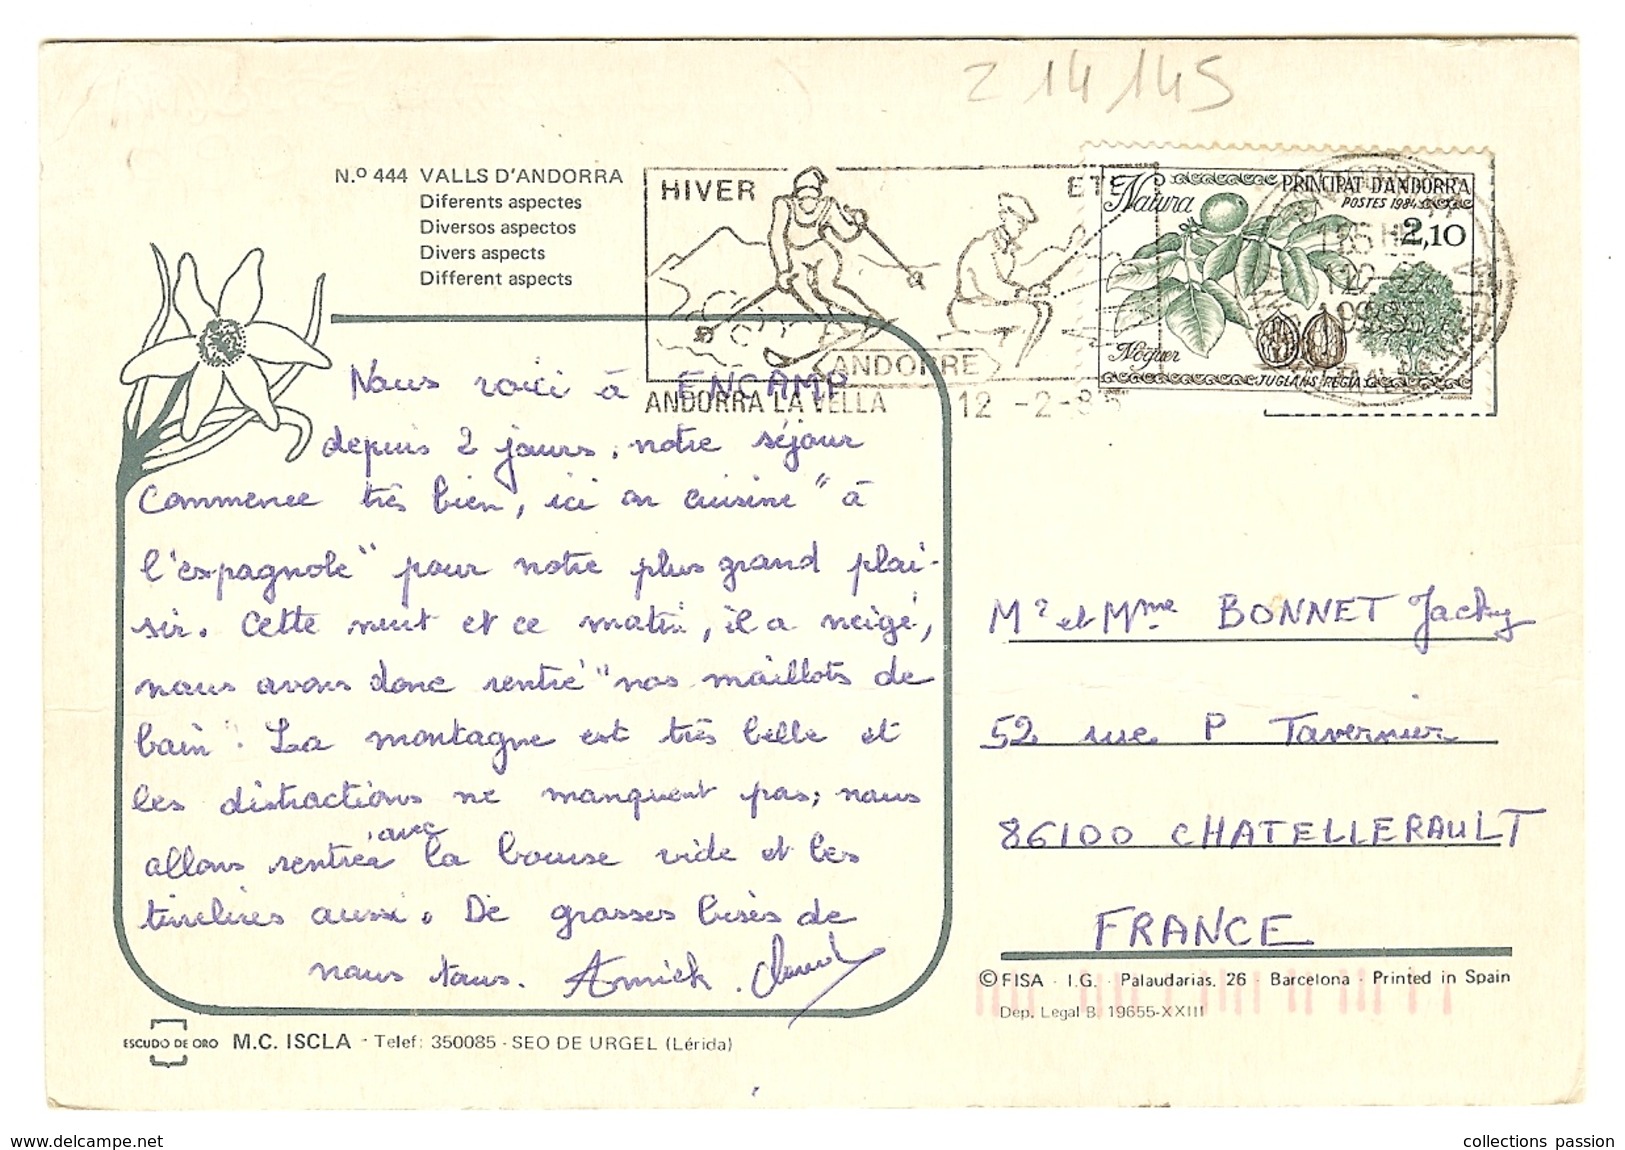 z 14145
N.º 444 VALLS D'ANDORRA
Diferents aspectes
Diversos aspectos
Divers aspects
Different aspects
HIVER
ETE
ANDORRE
ANDORRA LA VELLA 12 -2-85
Natura
PRINCIPAT D'ANDORRA
POSTES 1984
2,10
Noguer
JUGLANS REGIA
Nous voici à ENCAMP
depuis 2 jours, notre séjour
commence très bien, ici on cuisine "à
l'espagnole" pour notre plus grand plai-
sir. Cette nuit et ce matin, il a neigé,
nous avons donc rentré "nos maillots de
bain". La montagne est très belle et
les distractions ne manquent pas; nous
allons rentrée avec la bourse vide et les
tirelires aussi. De grosses bises de
nous tous. Annick.
Mr et Mme BONNET Jacky
52 rue P Tavernier
86100 CHATELLERAULT
FRANCE
© FISA - I.G. - Palaudarias, 26 - Barcelona - Printed in Spain
Dep. Legal B. 19655-XXIII
ESCUDO DE ORO M.C. ISCLA - Telef: 350085 - SEO DE URGEL (Lérida)
www.delcampe.net
collections passion